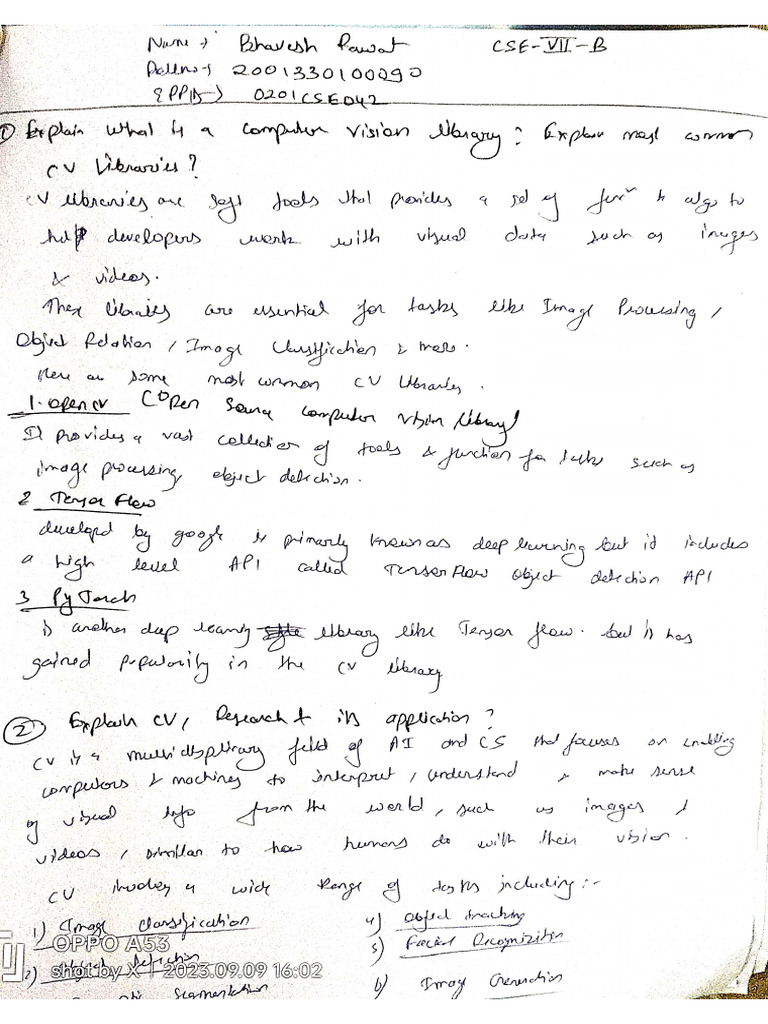 Name → Bhavesh Rawat CSE-VII-B
Rollno → 2001330100090
0201CSE042
① Explain what is a computer vision library? Explain most common
CV Libraries?
CV libraries are soft tools that provides a set of funⁿ & algo to
help developers work with visual data such as images
& videos.
These libraries are essential for tasks like Image Processing,
Object Relation, Image Classification & more.
Here are some most common CV libraries.
1. opencv (Open Source computer vision library)
It provides a vast collection of tools & function for tasks such as
image processing, object detection.
2 Tensor Flow
developed by google is primarly known as deep learning but it includes
a high level API called TENSERFLOW Object detection API
3 PyTorch
is another deep learning library like Tensor flow. but it has
gained popularity in the CV library
② Explain CV, Research & its application?
CV is a multidisplinary field of AI and CS that focuses on enabling
computers & machines to interpret, understand & make sense
of visual info from the world, such as images &
videos, similar to how humans do with their vision.
CV involves a wide range of tasks including:-
1) Image Classification 4) Object tracking
2) Object detection 5) Facial Recognization
Segmentation 6) Image Generation
OPPO A53
shot by X | 2023.09.09 16:02